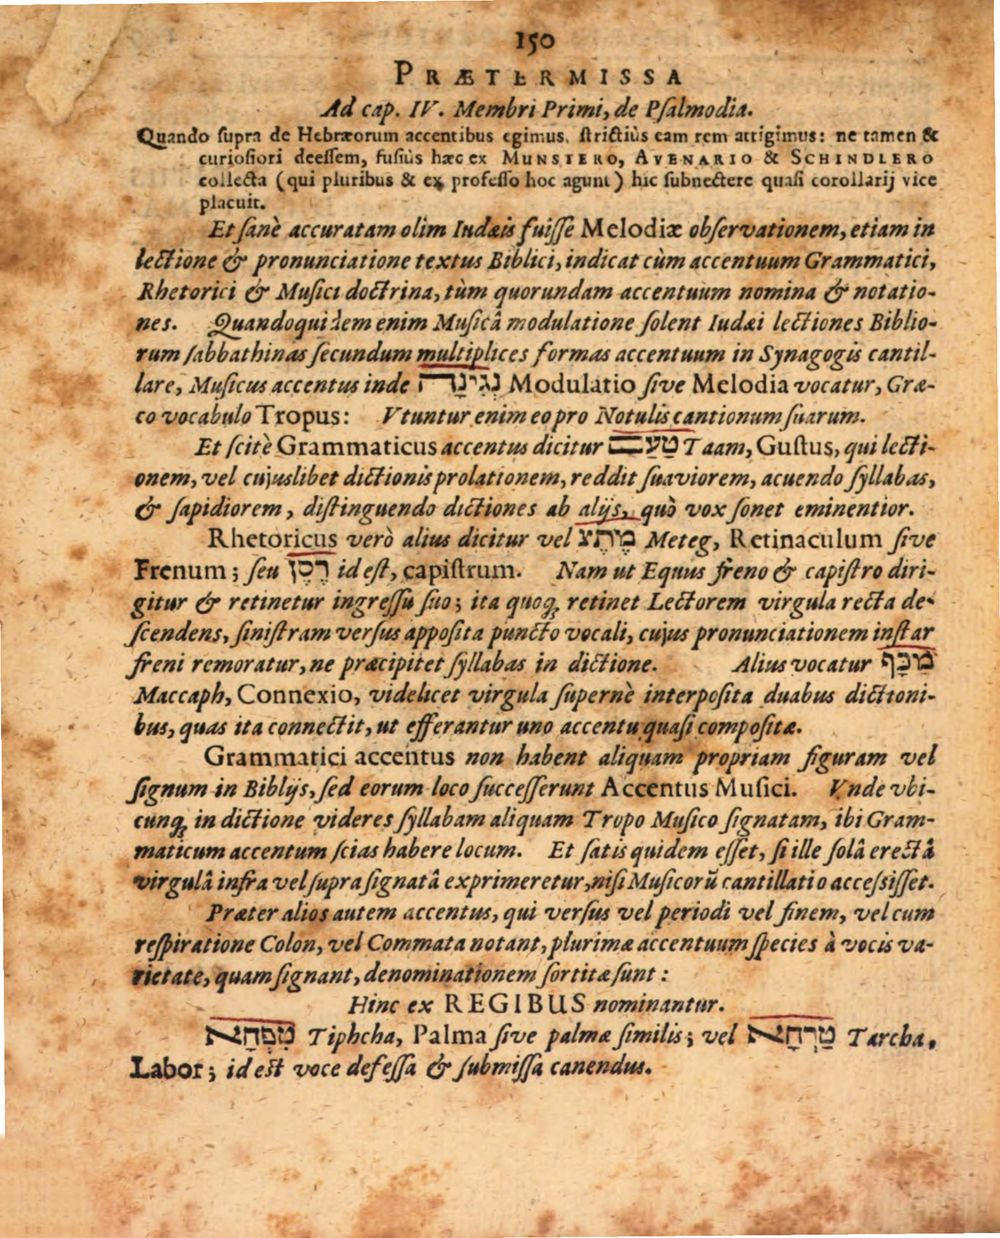 150
PRÆTERMISSA
Ad cap. IV. Membri Primi, de Pſalmodia.
Quando ſupra de Hebræorum accentibus egimus, ſtrictiùs eam rem attigimus: ne tamen &
curioſiori deeſſem, fuſiùs hæc ex MUNSTERO, AVENARIO & SCHINDLERO
collecta (qui pluribus & ex profeſſo hoc agunt) hic ſubnectere quaſi corollarij vice
placuit.
Et ſanè accuratam olim Iudæis fuiſſe Melodiæ obſervationem, etiam in
lectione & pronunciatione textus Biblici, indicat cùm accentuum Grammatici,
Rhetorici & Muſici doctrina, tùm quorundam accentuum nomina & notatio-
nes. Quandoquidem enim Muſicâ modulatione ſolent Iudæi lectiones Biblio-
rum ſabbathinas ſecundum multiplices formas accentuum in Synagogis cantil-
lare, Muſicus accentus inde נְגִינָה Modulatio ſive Melodia vocatur, Græ-
co vocabulo Tropus: Vtuntur enim eo pro Notulis cantionum ſuarum.
Et ſcitè Grammaticus accentus dicitur טַעַם Taam, Guſtus, qui lecti-
onem, vel cujuslibet dictionis prolationem, reddit ſuaviorem, acuendo ſyllabas,
& ſapidiorem, diſtinguendo dictiones ab alijs, quò vox ſonet eminentior.
Rhetoricus verò alius dicitur vel מֶתֶג Meteg, Retinaculum ſive
Frenum; ſeu רֶסֶן id eſt, capiſtrum. Nam ut Equus freno & capiſtro diri-
gitur & retinetur ingreſſu ſuo; ita quoq; retinet Lectorem virgula recta de-
ſcendens, ſiniſtram verſus appoſita puncto vocali, cujus pronunciationem inſtar
freni remoratur, ne præcipitet ſyllabas in dictione. Alius vocatur מַכָּף
Maccaph, Connexio, videlicet virgula ſupernè interpoſita duabus dictioni-
bus, quas ita connectit, ut efferantur uno accentu quaſi compoſitæ.
Grammatici accentus non habent aliquam propriam figuram vel
ſignum in Biblijs, ſed eorum loco ſucceſſerunt Accentus Muſici. Vnde vbi-
cunq; in dictione videres ſyllabam aliquam Tropo Muſico ſignatam, ibi Gram-
maticum accentum ſcias habere locum. Et ſatis quidem eſſet, ſi ille ſolâ erectâ
virgulâ infra vel ſupra ſignatâ exprimeretur, niſi Muſicorũ cantillatio acceſsiſſet.
Præter alios autem accentus, qui verſus vel periodi vel finem, vel cum
reſpiratione Colon, vel Commata notant, plurimæ accentuum ſpecies à vocis va-
rietate, quam ſignant, denominationem ſortitæ ſunt:
Hinc ex REGIBUS nominantur.
טִפְחָא Tiphcha, Palma ſive palmæ ſimilis; vel טַרְחָא Tarcha,
Labor; id eſt voce defeſſa & ſubmiſſa canendus.